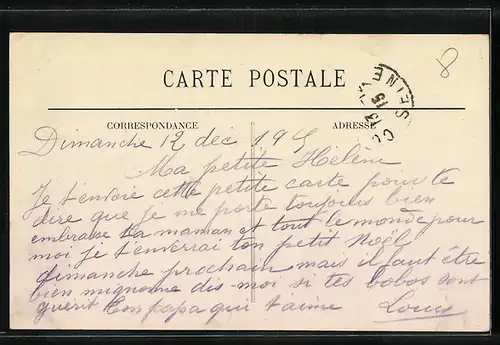 8
CARTE POSTALE
CORRESPONDANCE
ADRESSE
SEINE
13
15
Dimanche 12 déc 191
Ma petite Hélène
Je t'envoie cette petite carte pour te
dire que je me porte toujours bien
embrasse ta maman et tout le monde pour
moi je t'enverrai ton petit Noël
dimanche prochain mais il faut être
bien mignonne dis-moi si tes bobos sont
guérit ton papa qui t'aime Louis